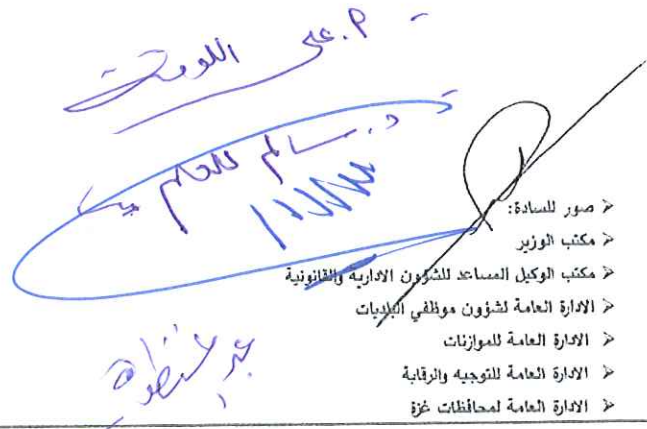 م. علي
د. سالم للعلم
صور للسادة:
مكتب الوزير
مكتب الوكيل المساعد للشؤون الادارية والقانونية
الادارة العامة لشؤون موظفي البلديات
الادارة العامة للموازنات
الادارة العامة للتوجيه والرقابة
الادارة العامة لمحافظات غزة